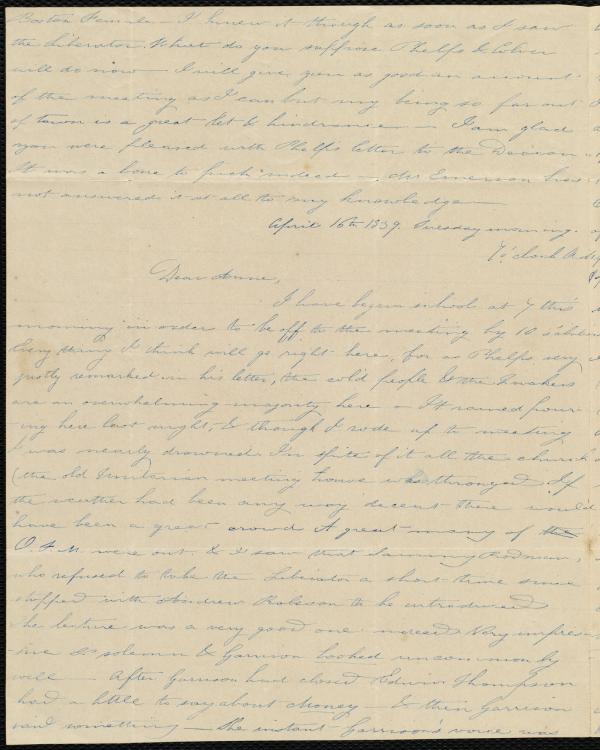 Boston Female – I knew it though as soon as I saw
the Liberator. What do you suppose Phelps & Colver
will do now – I will give you as good an account
of the meeting as I can but my being so far out
of town is a great let & hindrance – I am glad
you were pleased with Phelps letter to the Deacon
It was a bone to pick indeed – Mr Emerson has
not answered it at all to my knowledge –
April 16th 1839. Tuesday morning.
7 o'clock A.M.
Dear Anne,
I have begun school at 7 this
morning in order to be off to the meeting by 10 o'clock
Every thing I think will go right here, for as Phelps very
justly remarked in his letter, the cold people & the Quakers
are an overwhelming majority here – It rained pour-
ing here last night, & though I rode up to meeting
I was nearly drowned. In spite of it all the church
(the old Unitarian meeting house was thronged. If
the weather had been any way decent there would
have been a great crowd A great many of the
O. F. M. were out. & I saw that Sammy Rodman,
who refused to take the Liberator a short time since
stopped with Andrew Robeson to be introduced
he lecture was a very good one indeed Very impres-
ive & solemn & Garrison looked uncommonly
well – After Garrison had closed Edwin Thompson
had a little to say about Money – & then Garrison
said something – The instant Garrison's voice was